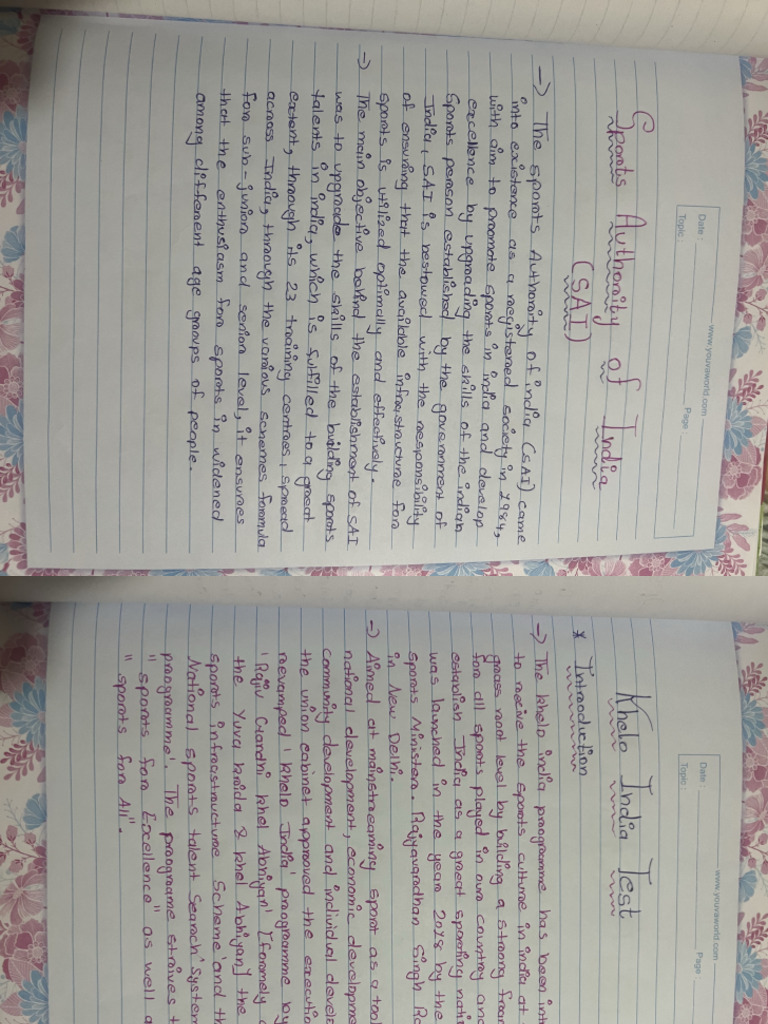 www.youvaworld.com
Date :
Page
Topic :
Sports Authority of India
(SAI)
→) The sports Authority of india (SAI) came
into existence as a registered society in 1984,
with aim to promote sports in india and develop
excellence by upgrading the skills of the indian
Sports person established by the government of
India, SAI is bestowed with the responsibility
of ensuring that the available infrastructure for
sports is utilized optimally and effectively.
→) The main objective behind the establishment of SAI
was to upgrade the skills of the building sports
talents in india, which is fulfilled to a great
extent, through its 23 training centres, spread
across India, through the various schemes formula
for sub-juniors and senior level, it ensures
that the enthusiasm for sports in widened
among different age groups of people.
www.youvaworld.com
Date :
Page
Topic :
Khelo India Test
* Introduction
→) The khelo india programme has been int
to receive the sports culture in india at
grass root level by building a strong fram
for all sports played in our country and
establish India as a great sporting nati
was launched in the year 2018 by the
sports Minister. Rajyavardhan Singh Ra
in New Delhi.
→) Aimed at mainstreaming sport as a tool
national development, economic developme
community development and individual develo
the union cabinet approved the executio
revamped 'khelo India' programme by
'Rajiv Gandhi khel Abhiyan' [formely
the Yuva krida & khel Abhiyan] the
sports infrastructure Scheme' and th
National sports talent Search' System
programme'. The programe straives t
"sports for Excellence" as well a
"sports for All".